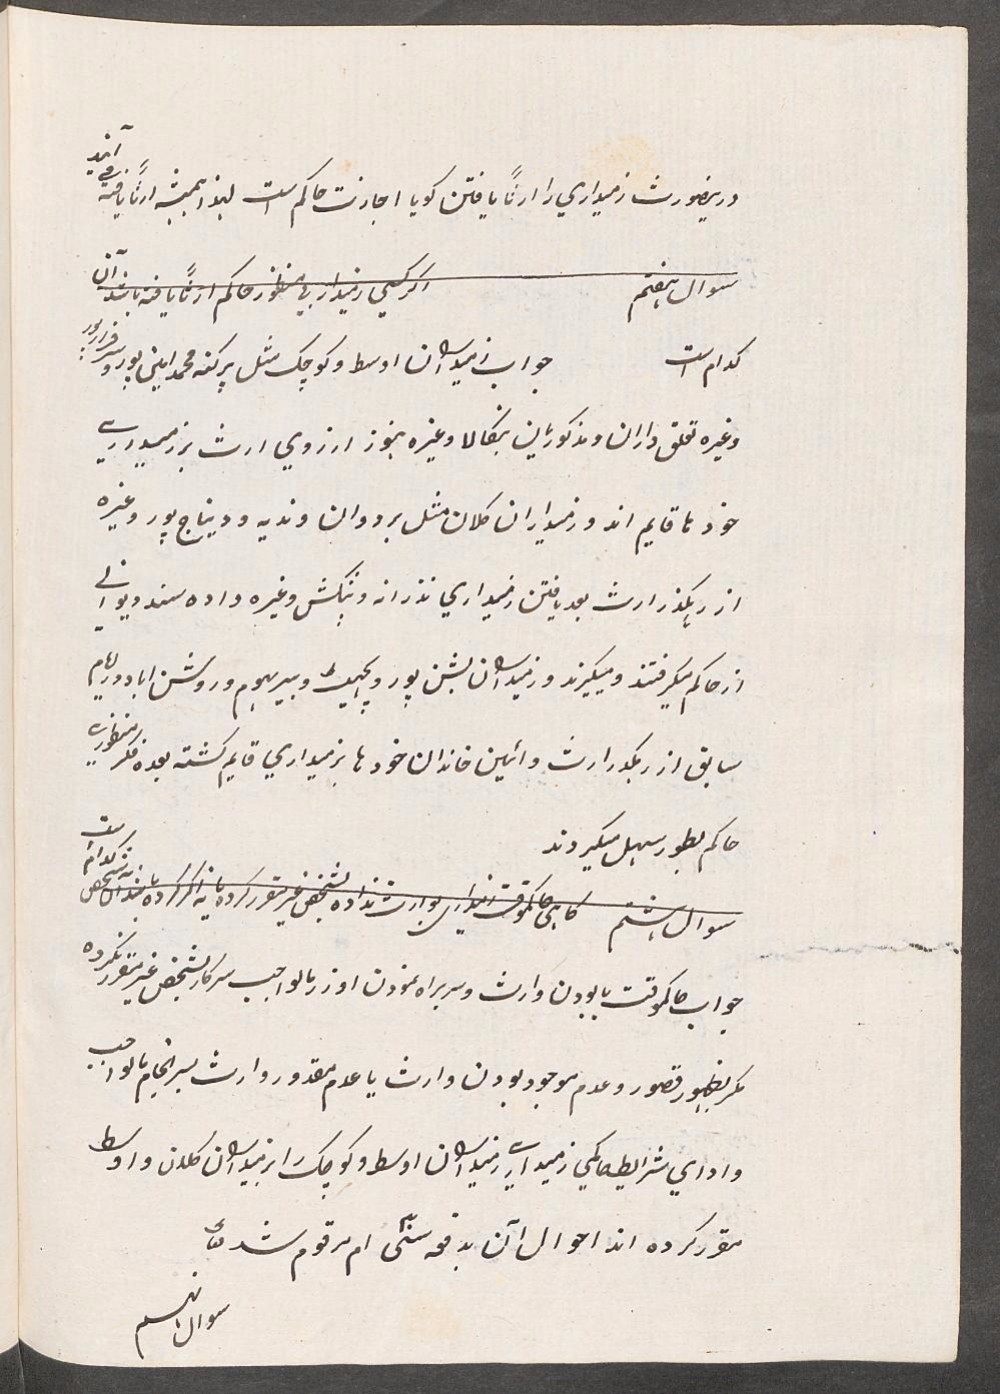 درینصورت زمیداري را ارثاً یافتن کویا اجازت حاکم است لهذا همیشه ارثاً یافته می آیند
سوال هفتم اکر کسي زمیدار بی منظور حاکم ارثاً یافته باشد آن
کدام است جواب زمیداران اوسط و کوچک مثل پرکنه محمد امین پور و سرفراز پور
وغیره تعلق داران و مذکوریان بنکالا وغیره هنوز ازروي ارث بر زمیداري
خودها قایم اند و زمیداران کلان مثل بردوان و ندیه و دیناج پور وغیره
از رهکذر ارث بعد یافتن زمیداري نذرانه و پیشکش وغیره داده سند دیواني
از حاکم میکرفتند و میکیرند و زمیداران بشن پور و پچیت و بیربهوم و روشن اباد در ایام
سابق از رهکذر ارث و ائین خاندان خودها بزمیداري قایم کشته بعده فکر منظوري
حاکم بطور سهل میکردند
سوال هشتم کاهی حاکموقت زمیداري بوارث نداده بشخص غیر مقرر کرده یا نه اکر کرده باشد آن شخص کدام است
جواب حاکموقت با بودن وارث و سربراه نمودن او زر بالواجب سرکار بشخص غیر مقرر نکرده
مکر بظهور قصور و عدم موجود بودن وارث یا عدم مقدور وارث بسرانجام بالواجب
و اداي شرایط حاکمي زمیداري زمیداران اوسط و کوچک را بزمیداران کلان و اوسط
مقرر کرده اند احوال آن بدفعه سي ام مرقوم شد
سوال نهم